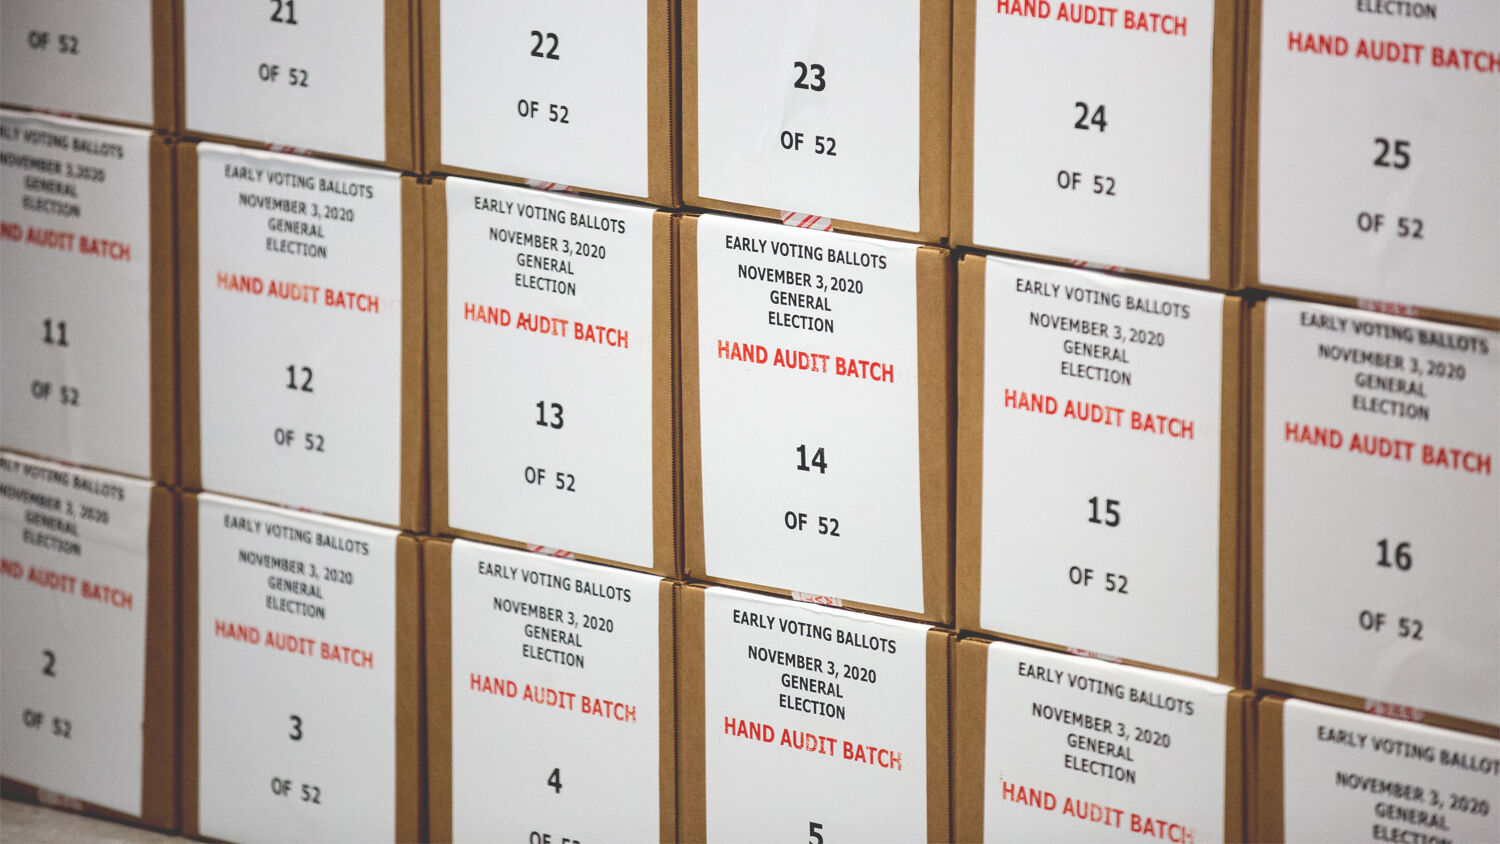 OF 52
21
OF 52
22
OF 52
23
OF 52
HAND AUDIT BATCH
24
OF 52
ELECTION
HAND AUDIT BATCH
25
OF 52
VOTING BALLOTS
NOVEMBER 3,2020
GENERAL
ELECTION
AUDIT BATCH
11
OF 52
EARLY VOTING BALLOTS
NOVEMBER 3, 2020
GENERAL
ELECTION
HAND AUDIT BATCH
12
OF 52
EARLY VOTING BALLOTS
NOVEMBER 3, 2020
GENERAL
ELECTION
HAND AUDIT BATCH
13
OF 52
EARLY VOTING BALLOTS
NOVEMBER 3, 2020
GENERAL
ELECTION
HAND AUDIT BATCH
14
OF 52
EARLY VOTING BALLOTS
NOVEMBER 3, 2020
GENERAL
ELECTION
HAND AUDIT BATCH
15
OF 52
EARLY VOTING BALLOTS
NOVEMBER 3, 2020
GENERAL
ELECTION
HAND AUDIT BATCH
16
OF 52
VOTING BALLOTS
NOVEMBER 3, 2020
GENERAL
ELECTION
AUDIT BATCH
2
OF 52
EARLY VOTING BALLOTS
NOVEMBER 3, 2020
GENERAL
ELECTION
HAND AUDIT BATCH
3
OF 52
EARLY VOTING BALLOTS
NOVEMBER 3, 2020
GENERAL
ELECTION
HAND AUDIT BATCH
4
OF
EARLY VOTING BALLOTS
NOVEMBER 3, 2020
GENERAL
ELECTION
HAND AUDIT BATCH
5
EARLY VOTING BALLOTS
NOVEMBER 3, 2020
GENERAL
ELECTION
HAND AUDIT BATCH
EARLY VOTING
NOVEMBER 3, 2020
GENERAL
ELECTION